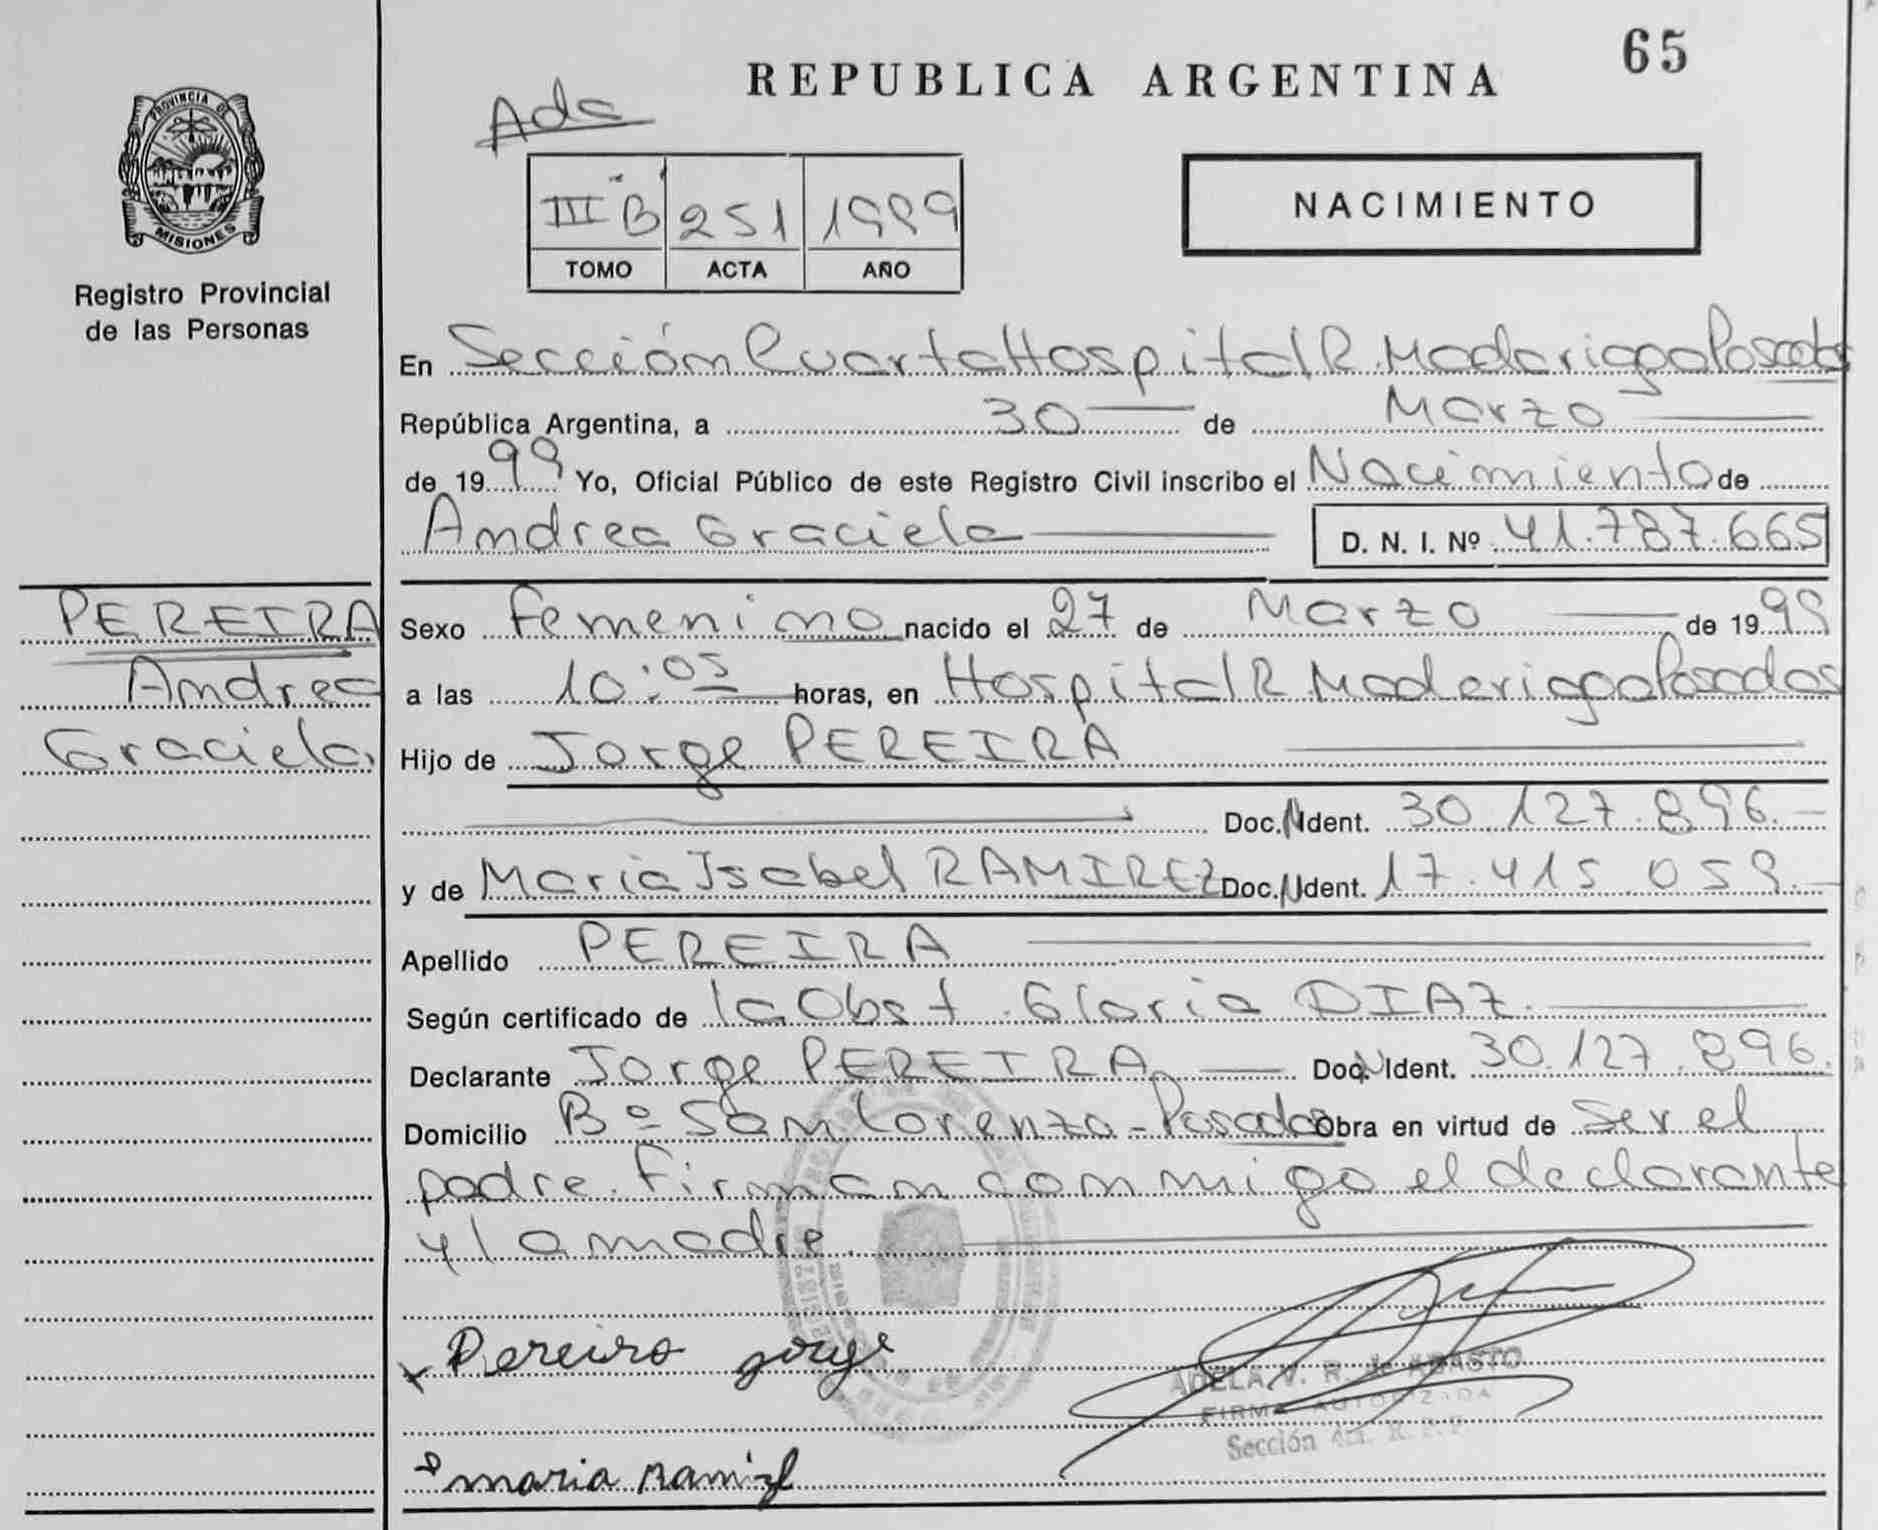 65
REPUBLICA ARGENTINA
Ada
III "B" 251 1999
TOMO ACTA AÑO
NACIMIENTO
PROVINCIA DE
MISIONES
Registro Provincial
de las Personas
En Sección Cuarta Hospital R. Madariaga Posadas
República Argentina, a 30 de Marzo
de 1999 Yo, Oficial Público de este Registro Civil inscribo el Nacimiento de
Andrea Graciela D. N. I. Nº 41.787.665
PEREIRA
Andrea
Graciela
Sexo Femenino nacido el 27 de Marzo de 1999
a las 10:05 horas, en Hospital R. Madariaga Posadas
Hijo de Jorge PEREIRA
Doc. N Ident. 30.127.896.-
y de Maria Isabel RAMIREZ Doc. N Ident. 17.415.059.-
Apellido PEREIRA
Según certificado de la Obst. Gloria DIAZ.
Declarante Jorge PEREIRA Doc. N Ident. 30.127.896.
Domicilio Bº San Lorenzo - Posadas Obra en virtud de ser el
padre. Firman conmigo el declarante
y la madre.
x Pereira jorge
ADELA V. R. de ABASTO
FIRMA AUTORIZADA
Sección 4ta. R. P. P.
maria Ramirez